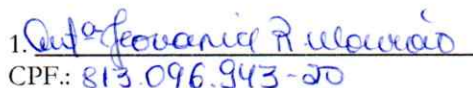 1. Antª Geovania R Mourão
CPF.: 813.096.943-20